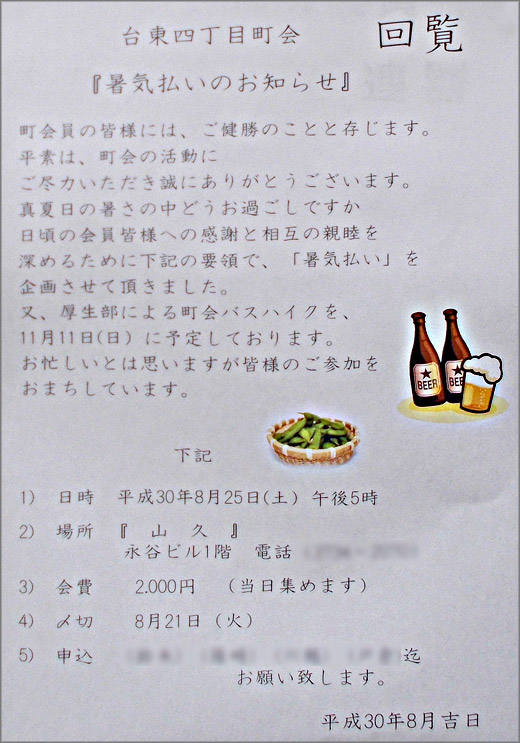 台東四丁目町会
回覧
『暑気払いのお知らせ』
町会員の皆様には、ご健勝のことと存じます。
平素は、町会の活動に
ご尽力いただき誠にありがとうございます。
真夏日の暑さの中どうお過ごしですか
日頃の会員皆様への感謝と相互の親睦を
深めるために下記の要領で、「暑気払い」を
企画させて頂きました。
又、厚生部による町会バスハイクを、
11月11日(日)に予定しております。
お忙しいとは思いますが皆様のご参加を
おまちしています。
BEER
BEE
下記
1) 日時 平成30年8月25日(土) 午後5時
2) 場所 『 山 久 』
永谷ビル1階 電話
3) 会費 2.000円 （当日集めます）
4) 〆切 8月21日（火）
5) 申込 迄
お願い致します。
平成30年8月吉日